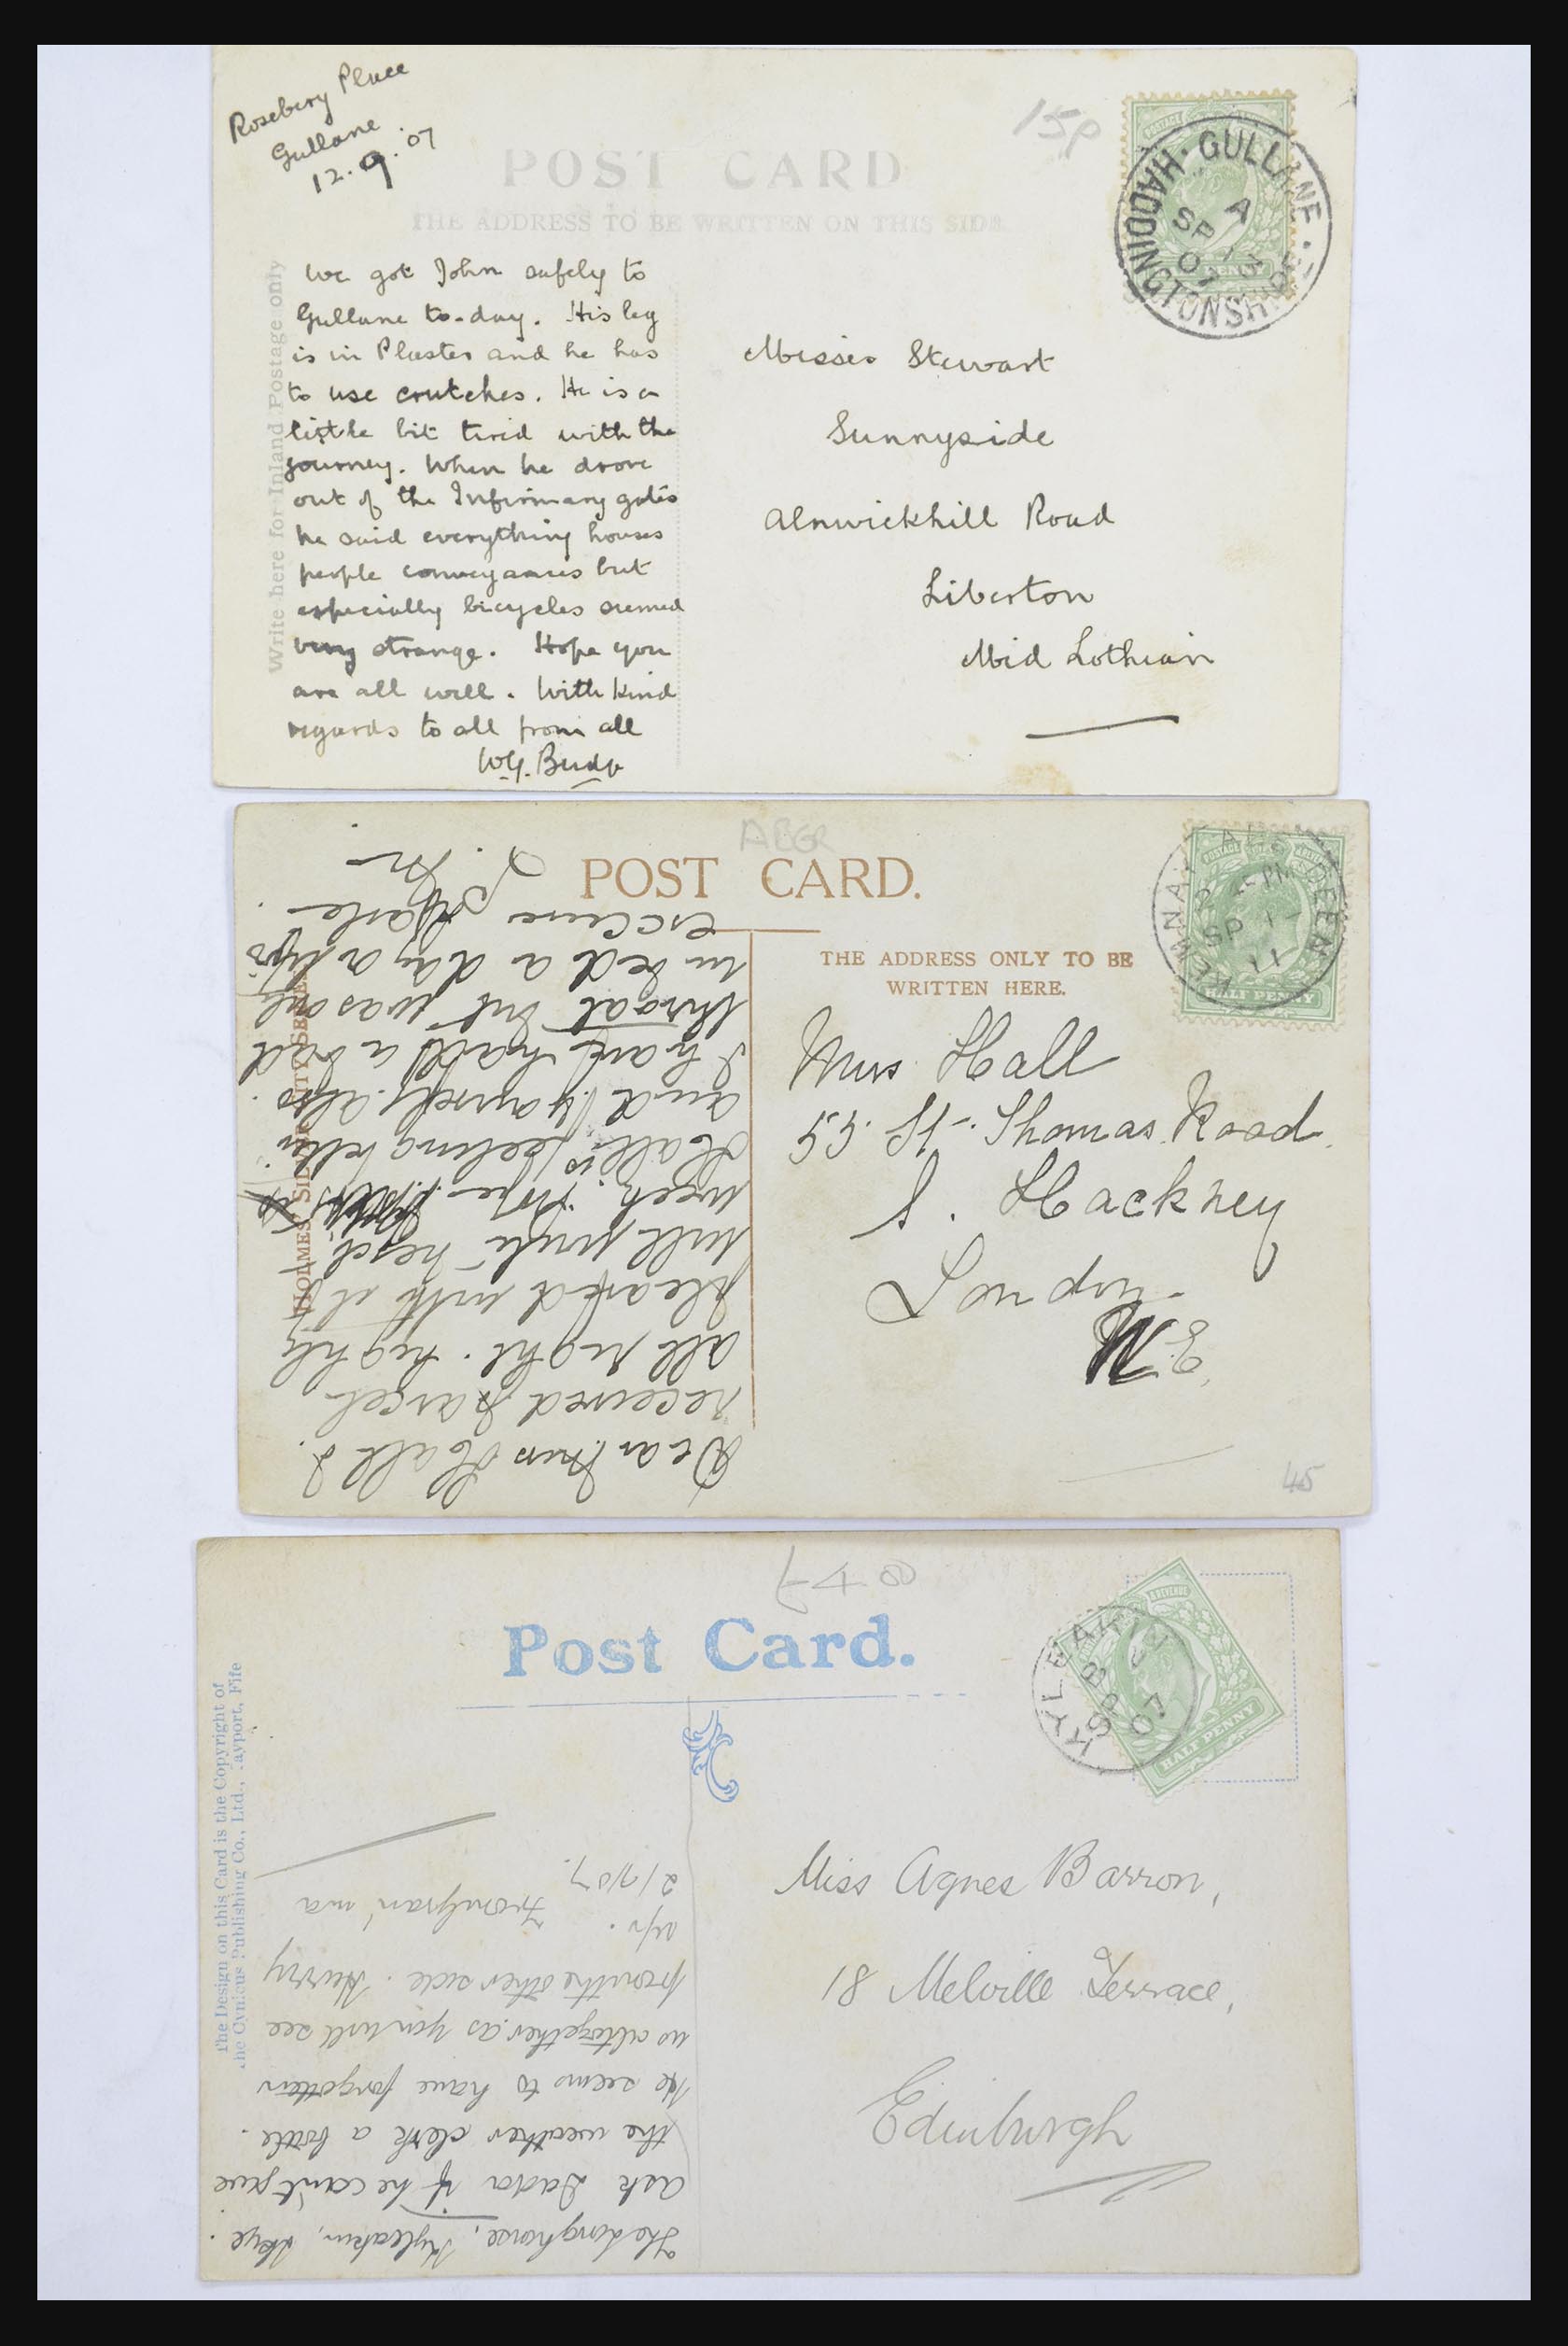 Rosebery Place
Gullane
12.9.'07
15p
POST CARD
THE ADDRESS TO BE WRITTEN ON THIS SIDE
Write here for Inland Postage only
We got John safely to
Gullane to-day. His leg
is in Plaster and he has
to use crutches. He is a
little bit tired with the
journey. When he drove
out of the Infirmary gates
he said everything houses
people conveyances but
especially bicycles seemed
very strange. Hope you
are all well. With kind
regards to all from all
W.G.
GULLANE · HADDINGTONSHIRE
A
SP 13
07
Misses Stewart
Sunnyside
Alnwickhill Road
Liberton
Mid Lothian
POST CARD.
THE ADDRESS ONLY TO BE
WRITTEN HERE.
KEMNAY ABERDEEN
PM
SP 1
11
HALF PENNY
Miss Hall
55 St. Thomas Road.
S. Hackney
London
N.E.
45
Dear Miss Hall I
received parcel
all right. highly
pleased with it
will write next
week. Hope
Hall is feeling better
and yourself also.
I have had a bad
throat but was only
in bed a day
excuse
£48
Post Card.
The Design on this Card is the Copyright of
the Cynicus Publishing Co., Ltd., Tayport, Fife
KYLEAKIN
B
SP 2
07
HALF PENNY
Miss Agnes Barron,
18 Melville Terrace,
Edinburgh
Kyleakin, Skye.
Ask Dada if he can't give
the weather clerk a bottle.
He seems to have forgotten
us altogether as you will see
from the other side. Hurry
up.
2/9/07.